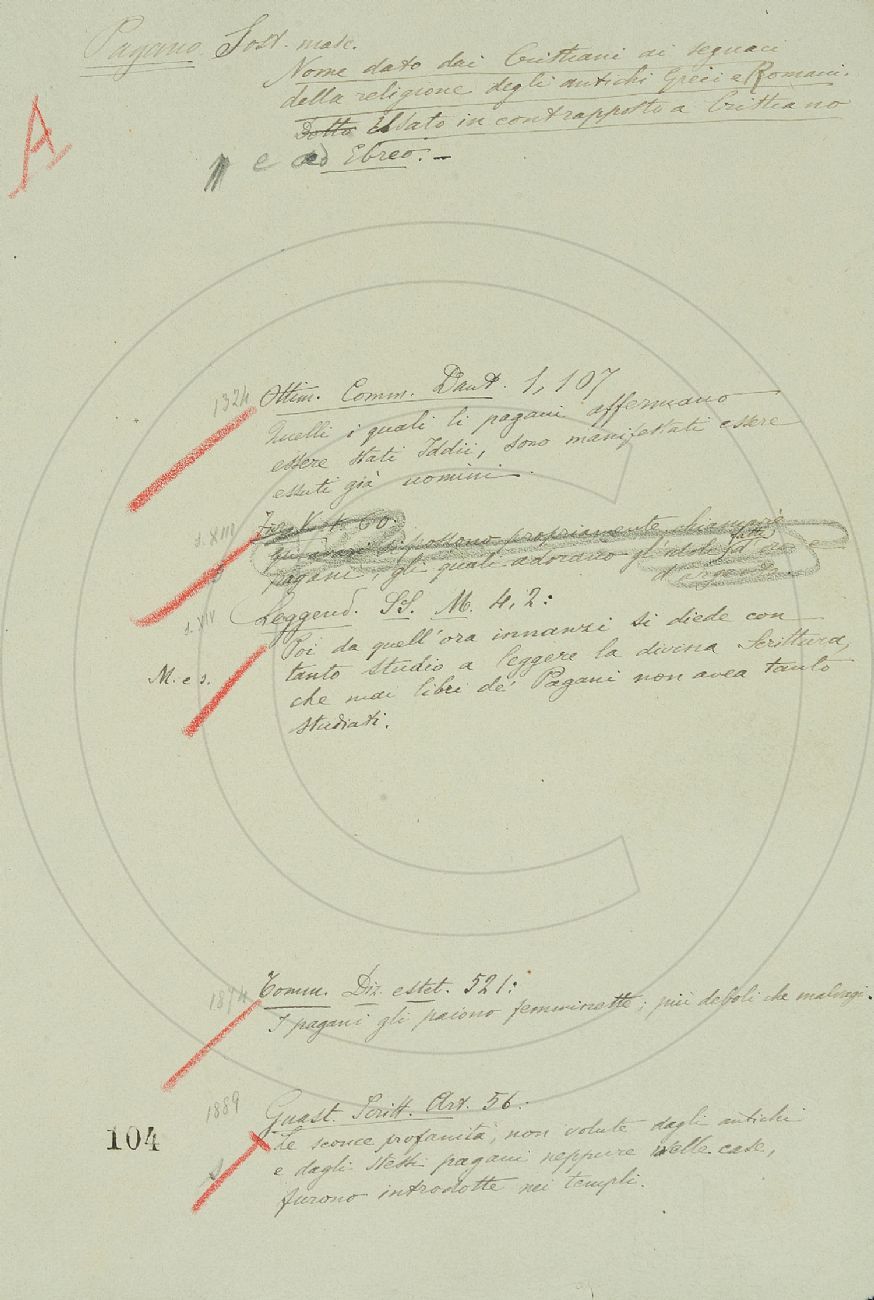 Pagano. Sost. masc.
Nome dato dai Cristiani ai seguaci
della religione degli antichi Greci e Romani.
Dotto Usato in contrapposto a Cristiano
e ad Ebreo. –
A
1324
Ottim. Comm. Dant. 1, 107
Quelli i quali li pagani affermano
essere stati Iddii, sono manifestati essere
essuti già uomini.
s. XIII
V. 4. 60.
si possono propriamente chiamare
pagani, gli quali adorano gl'idoli fatti
d'argento.
s. XIV
Leggend. SS. M. 4, 2:
Poi da quell'ora innanzi si diede con
tanto studio a leggere la divina Scrittura,
M. e s.
che mai libri de' Pagani non avea tanto
studiati.
1874
Tomm. Diz. estet. 521:
I pagani gli paiono femminette; più deboli che maligni.
1889
Guast. Scritt. Art. 56:
Le sconce profanità, non volute dagli antichi
104
e dagli stessi pagani neppure nelle case,
furono introdotte nei templi.